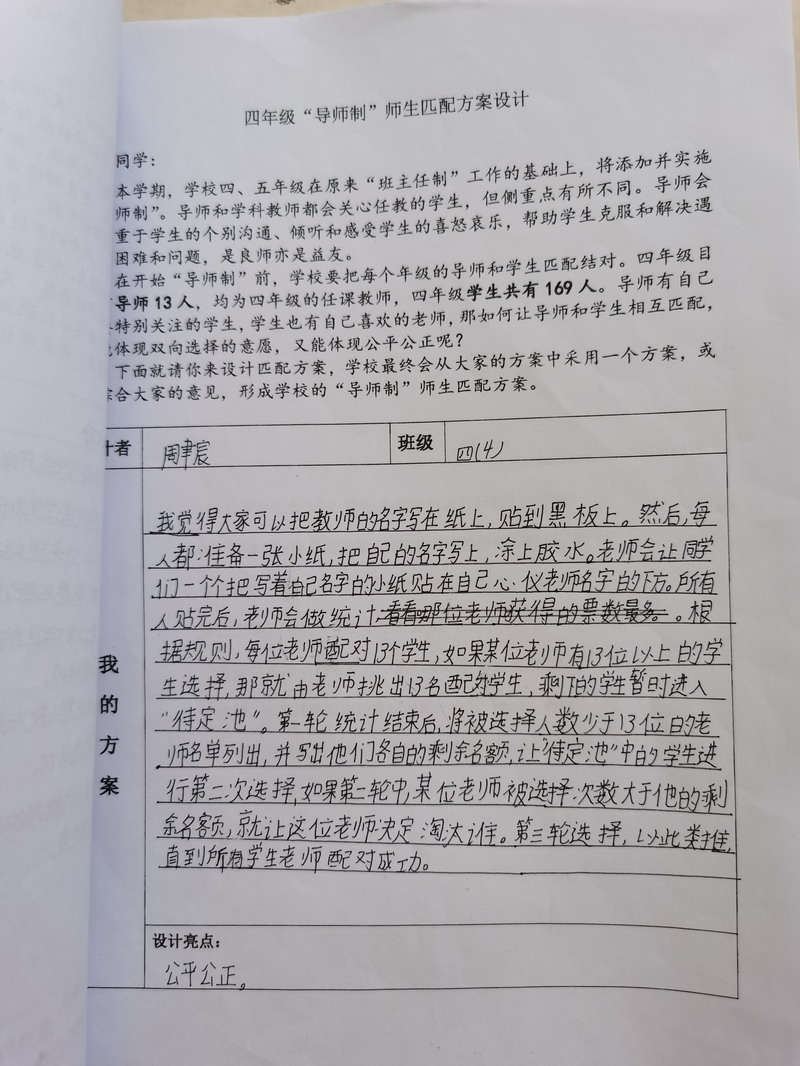 四年级“导师制”师生匹配方案设计
同学：
本学期，学校四、五年级在原来“班主任制”工作的基础上，将添加并实施
师制”。导师和学科教师都会关心任教的学生，但侧重点有所不同。导师会
重于学生的个别沟通、倾听和感受学生的喜怒哀乐，帮助学生克服和解决遇
困难和问题，是良师亦是益友。
在开始“导师制”前，学校要把每个年级的导师和学生匹配结对。四年级目
导师13人，均为四年级的任课教师，四年级学生共有169人。导师有自己
特别关注的学生，学生也有自己喜欢的老师，那如何让导师和学生相互匹配，
体现双向选择的意愿，又能体现公平公正呢？
下面就请你来设计匹配方案，学校最终会从大家的方案中采用一个方案，或
合大家的意见，形成学校的“导师制”师生匹配方案。
计者 周聿宸 班级 四(4)
我觉得大家可以把教师的名字写在纸上，贴到黑板上。然后，每
人都准备一张小纸，把自己的名字写上，涂上胶水。老师会让同学
们一个个把写着自己名字的小纸贴在自己心仪老师名字的下方。所有
人贴完后，老师会做统计，看看哪位老师获得的票数最多。。根
据规则，每位老师配对13个学生，如果某位老师有13位以上的学
生选择，那就由老师挑出13名配对学生，剩下的学生暂时进入
“待定池”。第一轮统计结束后，将被选择人数少于13位的老
师名单列出，并写出他们各自的剩余名额，让“待定池”中的学生进
行第二次选择，如果第二轮中，某位老师被选择次数大于他的剩
余名额，就让这位老师决定淘汰谁。第三轮选择，以此类推，
直到所有学生老师配对成功。
我的方案
设计亮点：
公平公正。